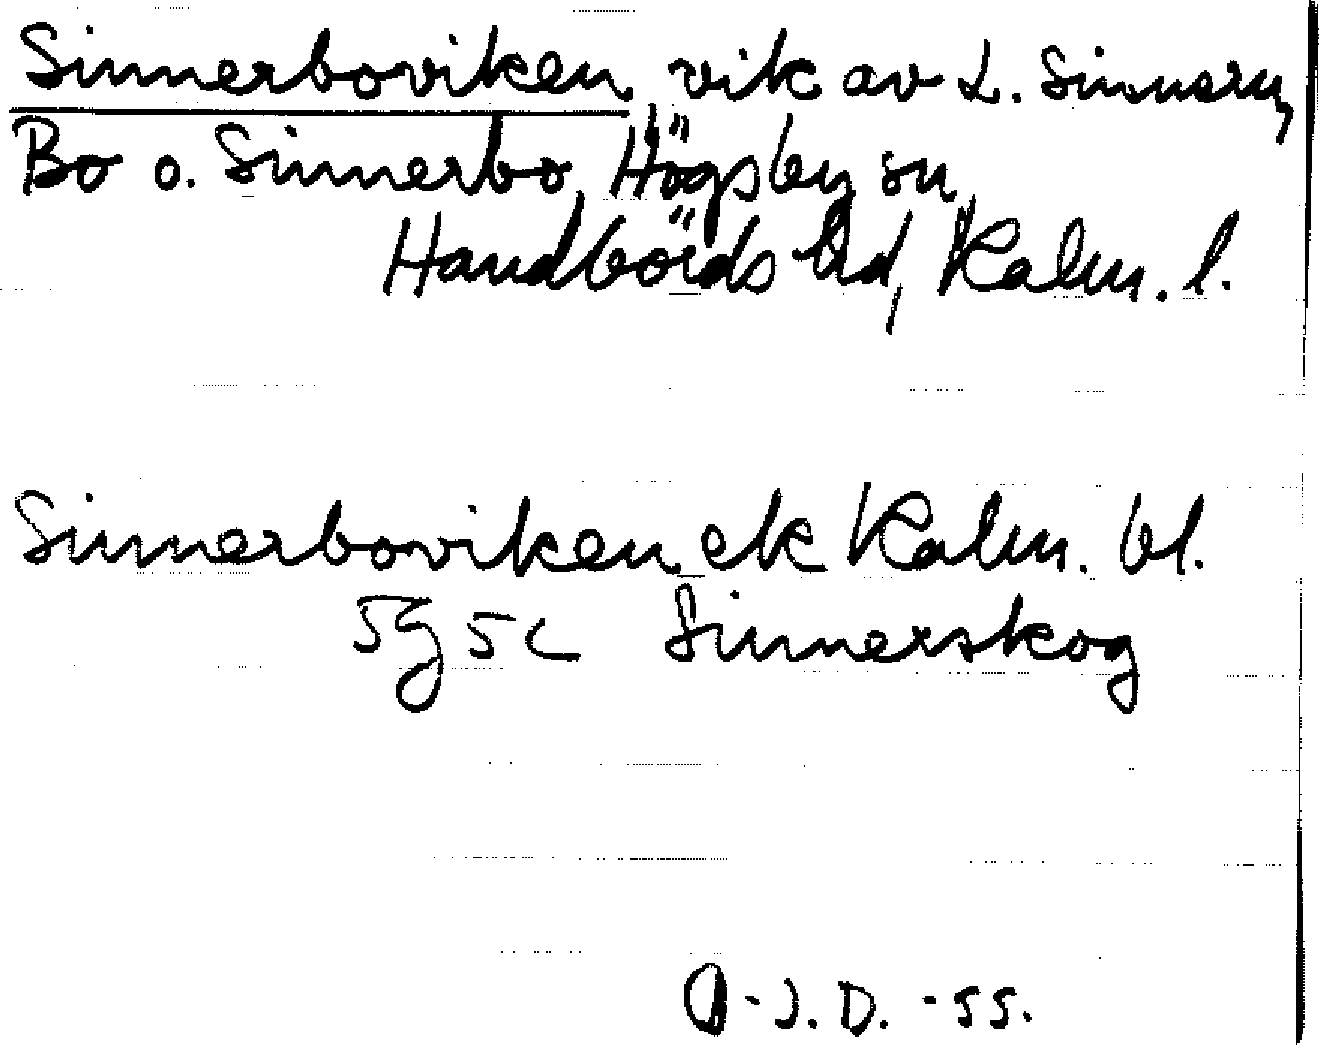 Sinnerboviken, vik av L. Sinnern,
Bo o. Sinnerbo, Högsby sn,
Handbörds hd, Kalm. l.
Sinnerboviken ek Kalm. bl.
5g 5c Sinnerskog
-J.D. -55.